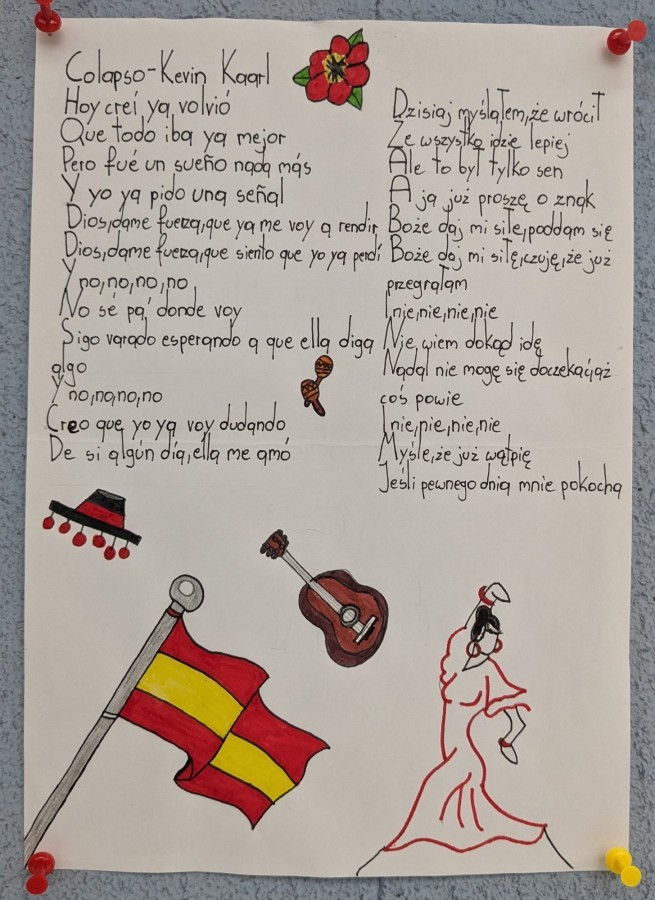 Colapso-Kevin Kaarl
Hoy creí ya volvió
Que todo iba ya mejor
Pero fué un sueño nada más
Y yo ya pido una señal
Dios,dame fuerza,que ya me voy a rendir
Dios,dame fuerza,que siento que yo ya perdí
Y no,no,no,no
No sé pa' donde voy
Sigo varado esperando a que ella diga
algo
Y no,no,no,no
Creo que yo ya voy dudando
De si algún día,ella me amó
Dzisiaj myślałem,że wrócił
Że wszystko idzie lepiej
Ale to był tylko sen
A ja już proszę o znak
Boże daj mi siłe,poddam się
Boże daj mi siłę,czuję,że już
przegrałam
I nie,nie,nie,nie
Nie wiem dokąd idę
Nadal nie mogę się doczekać,aż
coś powie
I nie,nie,nie,nie
Myśle,że już wątpię
Jeśli pewnego dnia mnie pokocha